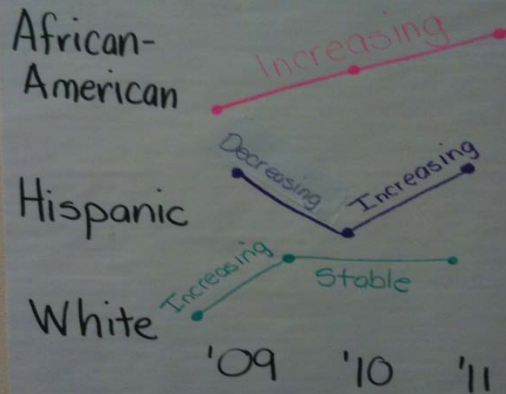 African-
American
Increasing
Hispanic
Decreasing
Increasing
White
Increasing
Stable
'09 '10 '11